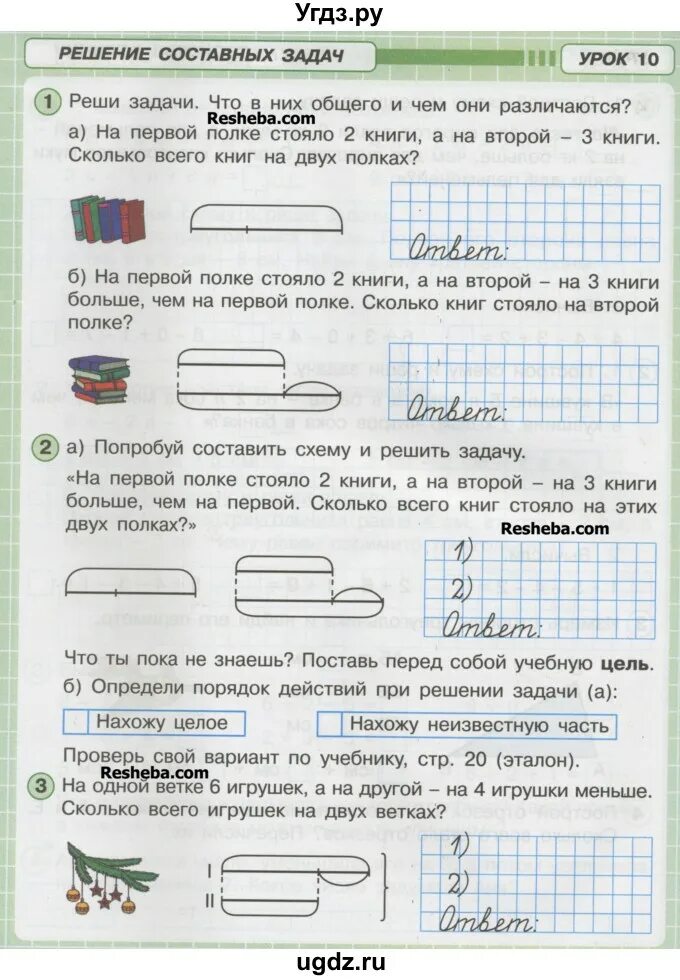 Угдз.ру
РЕШЕНИЕ СОСТАВНЫХ ЗАДАЧ
УРОК 10
1 Реши задачи. Что в них общего и чем они различаются?
Resheba.com
а) На первой полке стояло 2 книги, а на второй – 3 книги.
Сколько всего книг на двух полках?
Ответ:
б) На первой полке стояло 2 книги, а на второй – на 3 книги
больше, чем на первой полке. Сколько книг стояло на второй
полке?
Ответ:
2 а) Попробуй составить схему и решить задачу.
«На первой полке стояло 2 книги, а на второй – на 3 книги
больше, чем на первой. Сколько всего книг стояло на этих
двух полках?»
Resheba.com
1)
2)
Ответ:
Что ты пока не знаешь? Поставь перед собой учебную цель.
б) Определи порядок действий при решении задачи (а):
Нахожу целое
Нахожу неизвестную часть
Проверь свой вариант по учебнику, стр. 20 (эталон).
Resheba.com
3 На одной ветке 6 игрушек, а на другой – на 4 игрушки меньше.
Сколько всего игрушек на двух ветках?
1)
I
2)
II
Ответ:
ugdz.ru